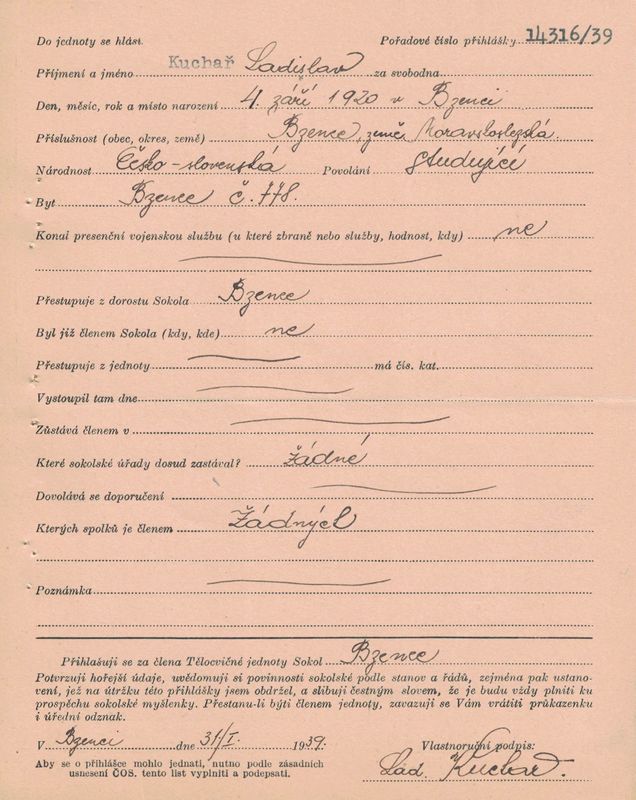 Do jednoty se hlásí. Pořadové číslo přihlášky 14316/39
Příjmení a jméno Kuchař Ladislav za svobodna
Den, měsíc, rok a místo narození 4. září 1920 v Bzenci
Příslušnost (obec, okres, země) Bzenec, země Moravskoslezská.
Národnost Česko-slovenská Povolání studující
Byt Bzenec č. 778.
Konal presenční vojenskou službu (u které zbraně nebo služby, hodnost, kdy) ne
Přestupuje z dorostu Sokola Bzenec
Byl již členem Sokola (kdy, kde) ne
Přestupuje z jednoty má čís. kat.
Vystoupil tam dne
Zůstává členem v
Které sokolské úřady dosud zastával? žádné
Dovolává se doporučení
Kterých spolků je členem Žádných
Poznámka
Přihlašuji se za člena Tělocvičné jednoty Sokol Bzenec
Potvrzuji hořejší údaje, uvědomuji si povinnosti sokolské podle stanov a řádů, zejména pak ustano-
vení, jež na útržku této přihlášky jsem obdržel, a slibuji čestným slovem, že je budu vždy plniti ku
prospěchu sokolské myšlenky. Přestanu-li býti členem jednoty, zavazuji se Vám vrátiti průkazenku
i úřední odznak.
V Bzenci dne 31/I. 1939. Vlastnoruční podpis:
Aby se o přihlášce mohlo jednati, nutno podle zásadních
usnesení ČOS. tento list vyplniti a podepsati. Lad. Kuchař.